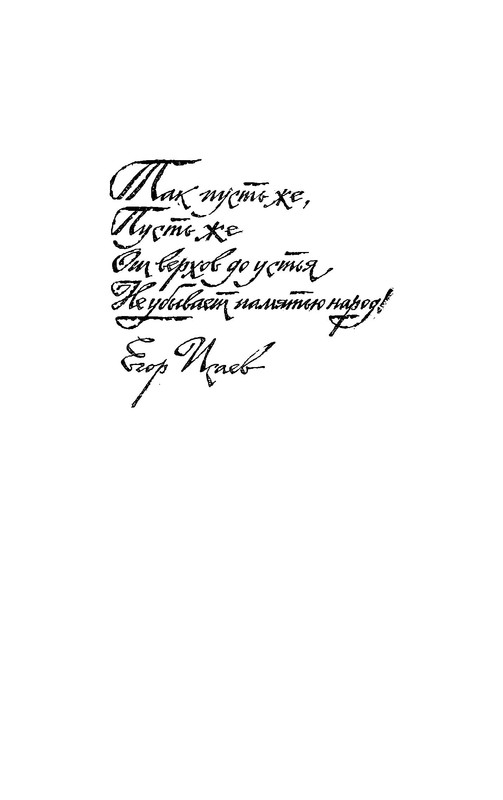 Так пусть же,
Пусть же
От верхов до устья
Не убывает памятью народ!
Егор Исаев